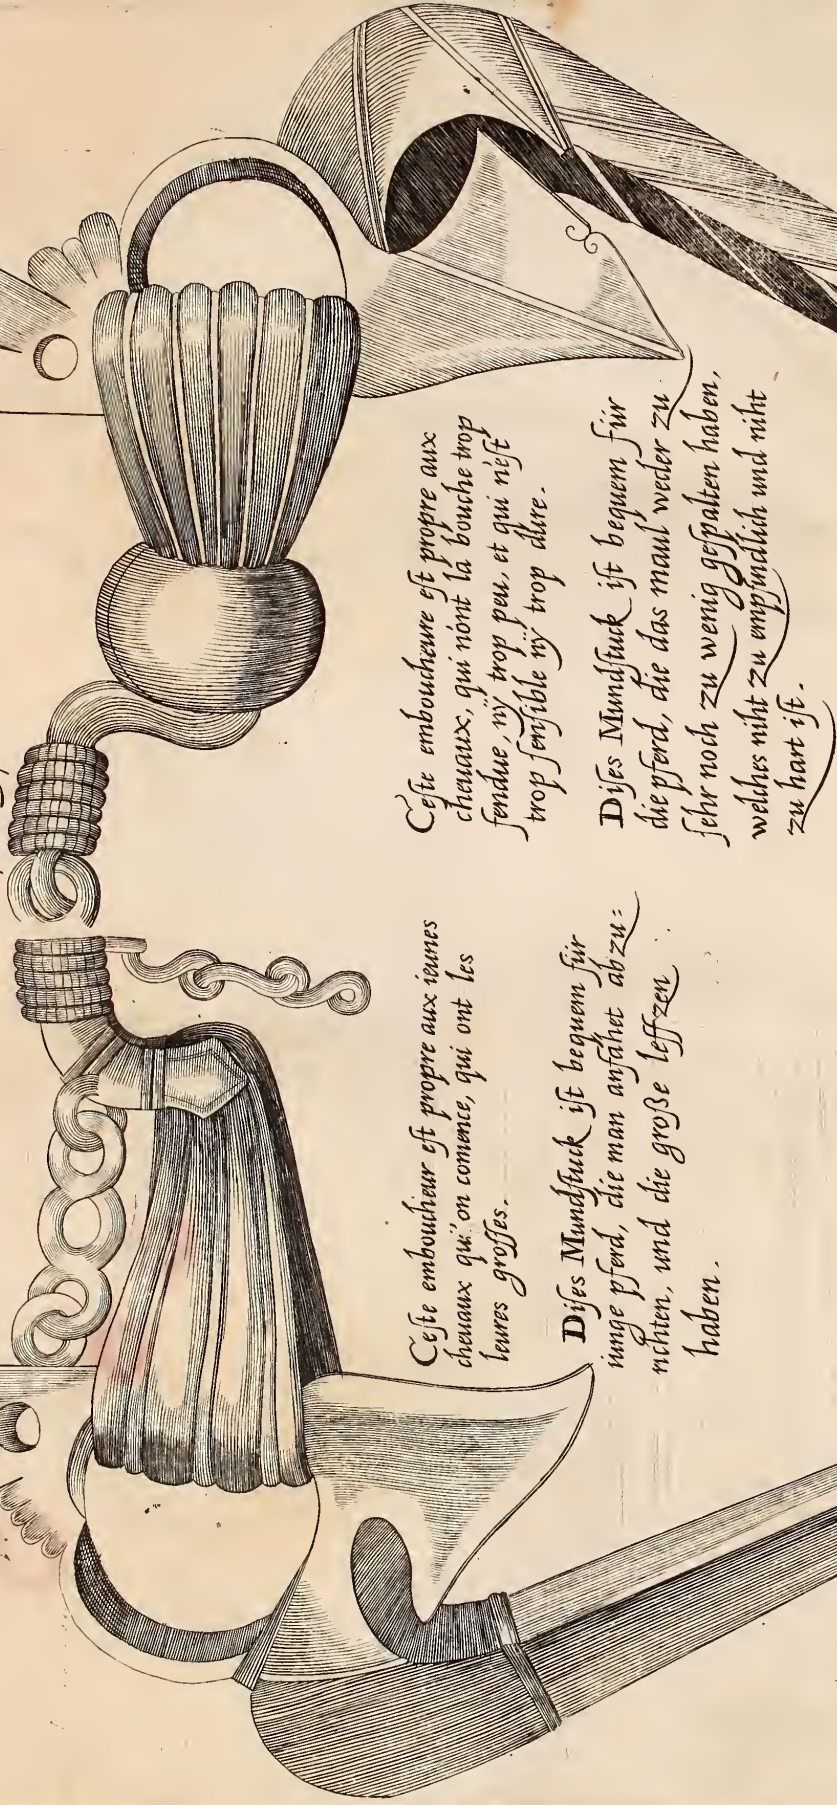 Ceste emboucheur est propre aux ieunes
cheuaux qu'on comence, qui ont les
leures grosses.
Dises Mundstuck ist bequem für
iunge pferd, die man anfähet abzu=
richten, und die große leffzen
haben.
Ceste emboucheure est propre aux
cheuaux, qui n'ont la bouche trop
fendue, nÿ trop peu, et qui n'est
trop sensible nÿ trop dure.
Dises Mundstuck ist bequem für
die pferd, die das maul weder zu
sehr noch zu wenig gespalten haben,
welches niht zu empfindlich und niht
zu hart ist.